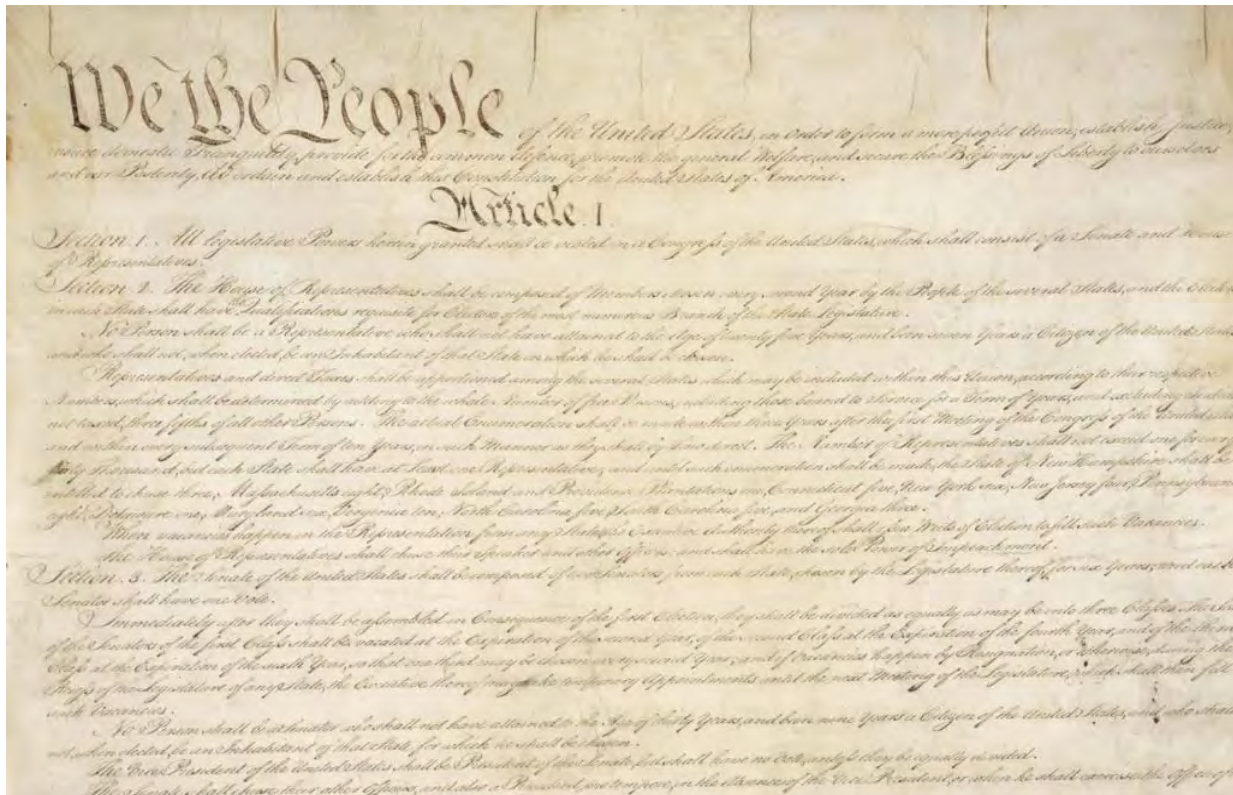 We the People of the United States, in Order to form a more perfect Union, establish Justice,
insure domestic Tranquility, provide for the common defence, promote the general Welfare, and secure the Blessings of Liberty to ourselves
and our Posterity, do ordain and establish this Constitution for the United States of America.
Article. I.
Section. 1. All legislative Powers herein granted shall be vested in a Congress of the United States, which shall consist of a Senate and House
of Representatives.
Section. 2. The House of Representatives shall be composed of Members chosen every second Year by the People of the several States, and the Electors
in each State shall have the Qualifications requisite for Electors of the most numerous Branch of the State Legislature.
No Person shall be a Representative who shall not have attained to the Age of twenty five Years, and been seven Years a Citizen of the United States,
and who shall not, when elected, be an Inhabitant of that State in which he shall be chosen.
Representatives and direct Taxes shall be apportioned among the several States which may be included within this Union, according to their respective
Numbers, which shall be determined by adding to the whole Number of free Persons, including those bound to Service for a Term of Years, and excluding Indians
not taxed, three fifths of all other Persons. The actual Enumeration shall be made within three Years after the first Meeting of the Congress of the United States,
and within every subsequent Term of ten Years, in such Manner as they shall by Law direct. The Number of Representatives shall not exceed one for every
thirty Thousand, but each State shall have at Least one Representative; and until such enumeration shall be made, the State of New Hampshire shall be
entitled to chuse three, Massachusetts eight, Rhode Island and Providence Plantations one, Connecticut five, New York six, New Jersey four, Pennsylvania
eight, Delaware one, Maryland six, Virginia ten, North Carolina five, South Carolina five, and Georgia three.
When vacancies happen in the Representation from any State, the Executive Authority thereof shall issue Writs of Election to fill such Vacancies.
The House of Representatives shall chuse their Speaker and other Officers; and shall have the sole Power of Impeachment.
Section. 3. The Senate of the United States shall be composed of two Senators from each State, chosen by the Legislature thereof, for six Years; and each
Senator shall have one Vote.
Immediately after they shall be assembled in Consequence of the first Election, they shall be divided as equally as may be into three Classes. The Seats
of the Senators of the first Class shall be vacated at the Expiration of the second Year, of the second Class at the Expiration of the fourth Year, and of the third
Class at the Expiration of the sixth Year, so that one third may be chosen every second Year; and if Vacancies happen by Resignation, or otherwise, during the
Recess of the Legislature of any State, the Executive thereof may make temporary Appointments until the next Meeting of the Legislature, which shall then fill
such Vacancies.
No Person shall be a Senator who shall not have attained to the Age of thirty Years, and been nine Years a Citizen of the United States, and who shall
not, when elected, be an Inhabitant of that State for which he shall be chosen.
The Vice President of the United States shall be President of the Senate, but shall have no Vote, unless they be equally divided.
The Senate shall chuse their other Officers, and also a President pro tempore, in the Absence of the Vice President, or when he shall exercise the Office of